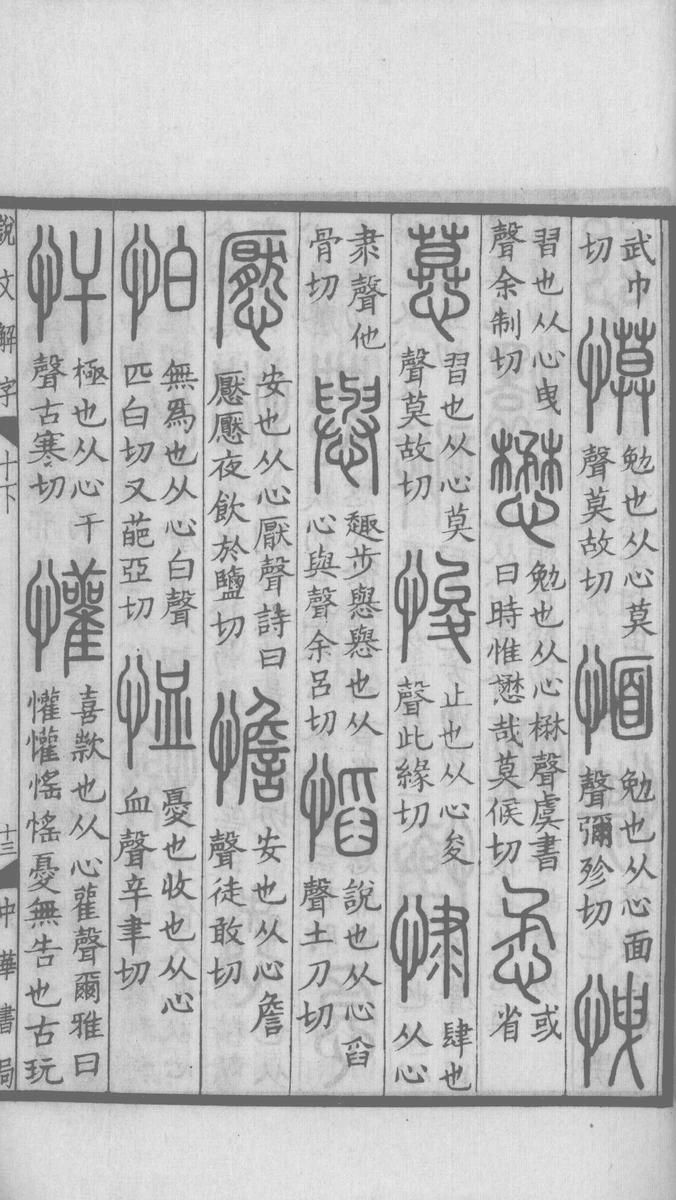 武巾切慔勉也从心莫聲莫故切愐勉也从心面聲彌殄切
習也从心曳聲余制切懋勉也从心楙聲虞書曰時惟懋哉莫候切或省
慕習也从心莫聲莫故切悛止也从心夋聲此緣切㥆肆也从心
隶聲他骨切㦛趣步㦛㦛也从心與聲余呂切慆說也从心舀聲土刀切
懕安也从心厭聲詩曰懕懕夜飲於鹽切憺安也从心詹聲徒敢切
怕無爲也从心白聲匹白切又葩亞切恤憂也收也从心血聲辛聿切
忓極也从心干聲古寒切懽喜款也从心雚聲爾雅曰懽懽愮愮憂無告也古玩
說文解字 十下 十三 中華書局